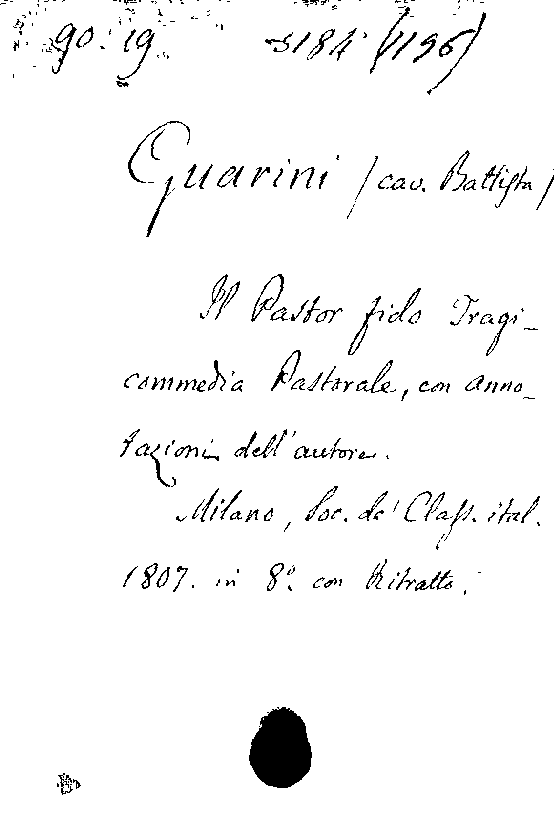 90. 19 5184 (196)
Guarini / cav. Battista /
Il Pastor fido Tragi-
commedia Pastorale, con anno-
tazioni dell'autore.
Milano, Soc. de' Class. ital.
1807. in 8.º con Ritratto.